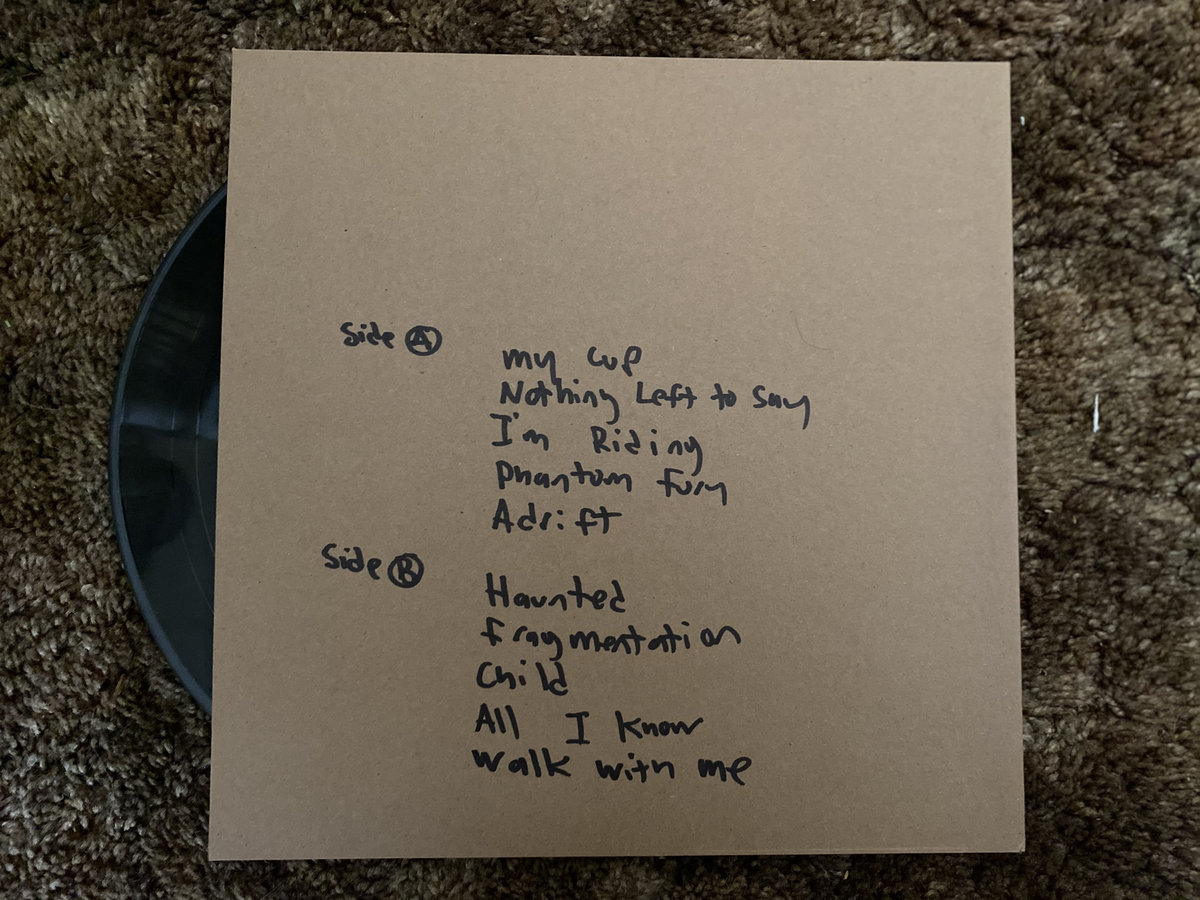 Side A
my cup
Nothing Left to Say
I'm Riding
Phantom fury
Adrift
Side B
Haunted
fragmentation
Child
All I know
walk with me